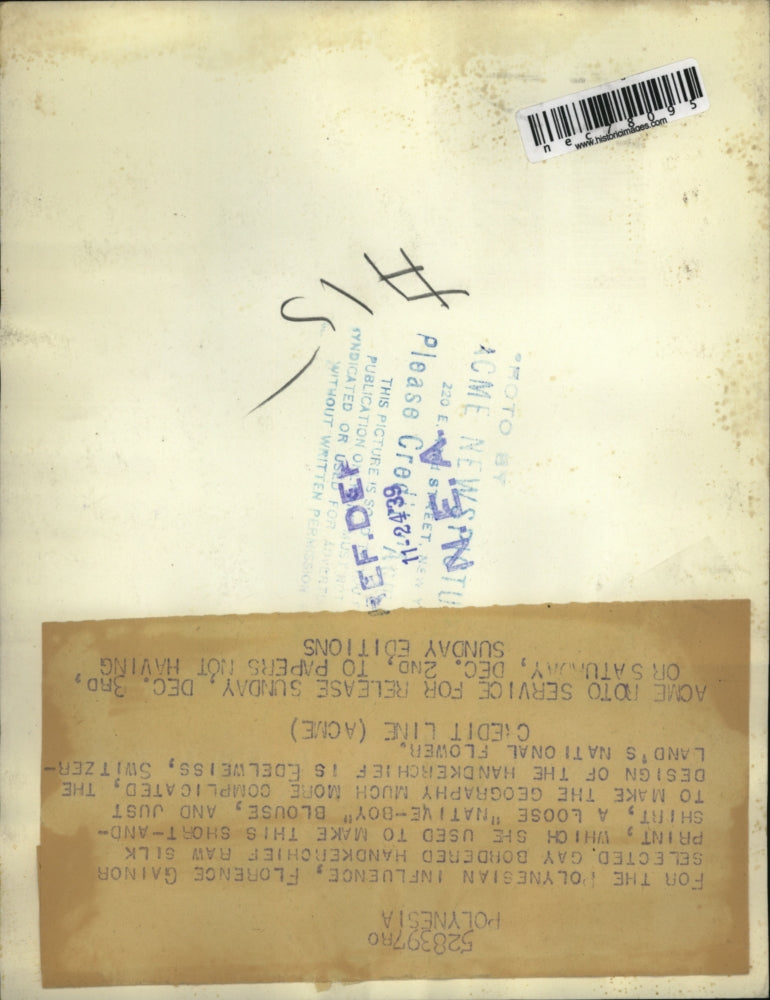 nec78095
www.historicimages.com
#15
PHOTO BY
ACME NEWSPICTU
220 E. ST, NEW Y
Please Credi
THIS PICTURE IS S
PUBLICATION O
SYNDICATED OR USED FOR ADVERT
WITHOUT WRITTEN PERMISSION
N.E.A.
11-24-39
REF.DEP
528397RO
POLYNESIA
FOR THE POLYNESIAN INFLUENCE, FLORENCE GAINOR
SELECTED GAY BORDERED HANDKERCHIEF RAW SILK
PRINT, WHICH SHE USED TO MAKE THIS SHORT-AND-
SHIRT, A LOOSE "NATIVE-BOY" BLOUSE, AND JUST
TO MAKE THE GEOGRAPHY MUCH MORE COMPLICATED, THE
DESIGN OF THE HANDKERCHIEF IS EDELWEISS, SWITZER-
LAND'S NATIONAL FLOWER.
CREDIT LINE (ACME)
ACME ROTO SERVICE FOR RELEASE SUNDAY, DEC. 3RD,
OR SATURDAY, DEC. 2ND, TO PAPERS NOT HAVING
SUNDAY EDITIONS